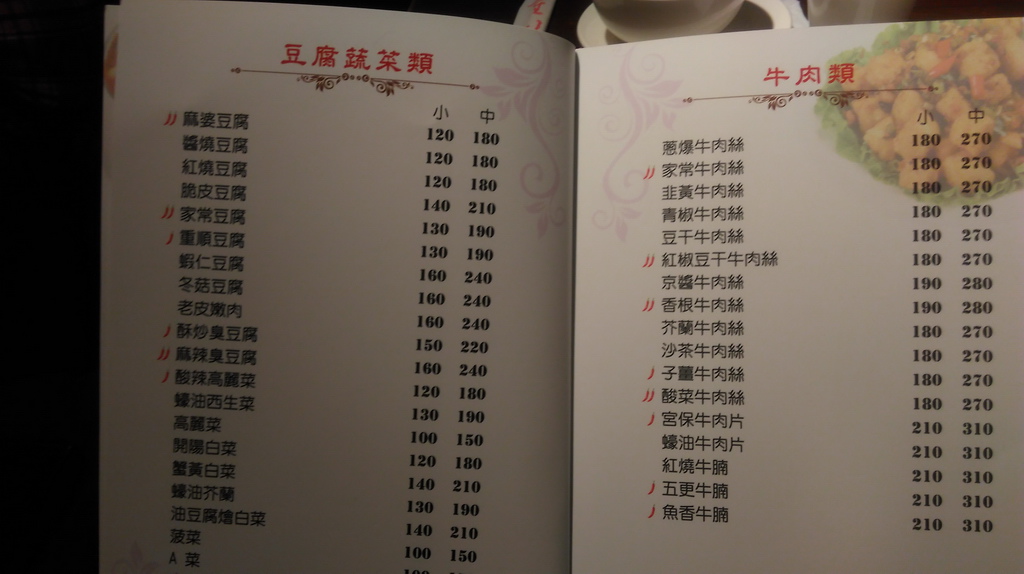 豆腐蔬菜類
小 中
麻婆豆腐 120 180
醬燒豆腐 120 180
紅燒豆腐 120 180
脆皮豆腐 140 210
家常豆腐 130 190
重順豆腐 130 190
蝦仁豆腐 160 240
冬菇豆腐 160 240
老皮嫩肉 160 240
酥炒臭豆腐 150 220
麻辣臭豆腐 160 240
酸辣高麗菜 120 180
蠔油西生菜 130 190
高麗菜 100 150
開陽白菜 120 180
蟹黃白菜 140 210
蠔油芥蘭 130 190
油豆腐燴白菜 140 210
菠菜 100 150
A 菜
牛肉類
小 中
蔥爆牛肉絲 180 270
家常牛肉絲 180 270
韭黃牛肉絲 180 270
青椒牛肉絲 180 270
豆干牛肉絲 180 270
紅椒豆干牛肉絲 180 270
京醬牛肉絲 190 280
香根牛肉絲 190 280
芥蘭牛肉絲 180 270
沙茶牛肉絲 180 270
子薑牛肉絲 180 270
酸菜牛肉絲 180 270
宮保牛肉片 210 310
蠔油牛肉片 210 310
紅燒牛腩 210 310
五更牛腩 210 310
魚香牛腩 210 310